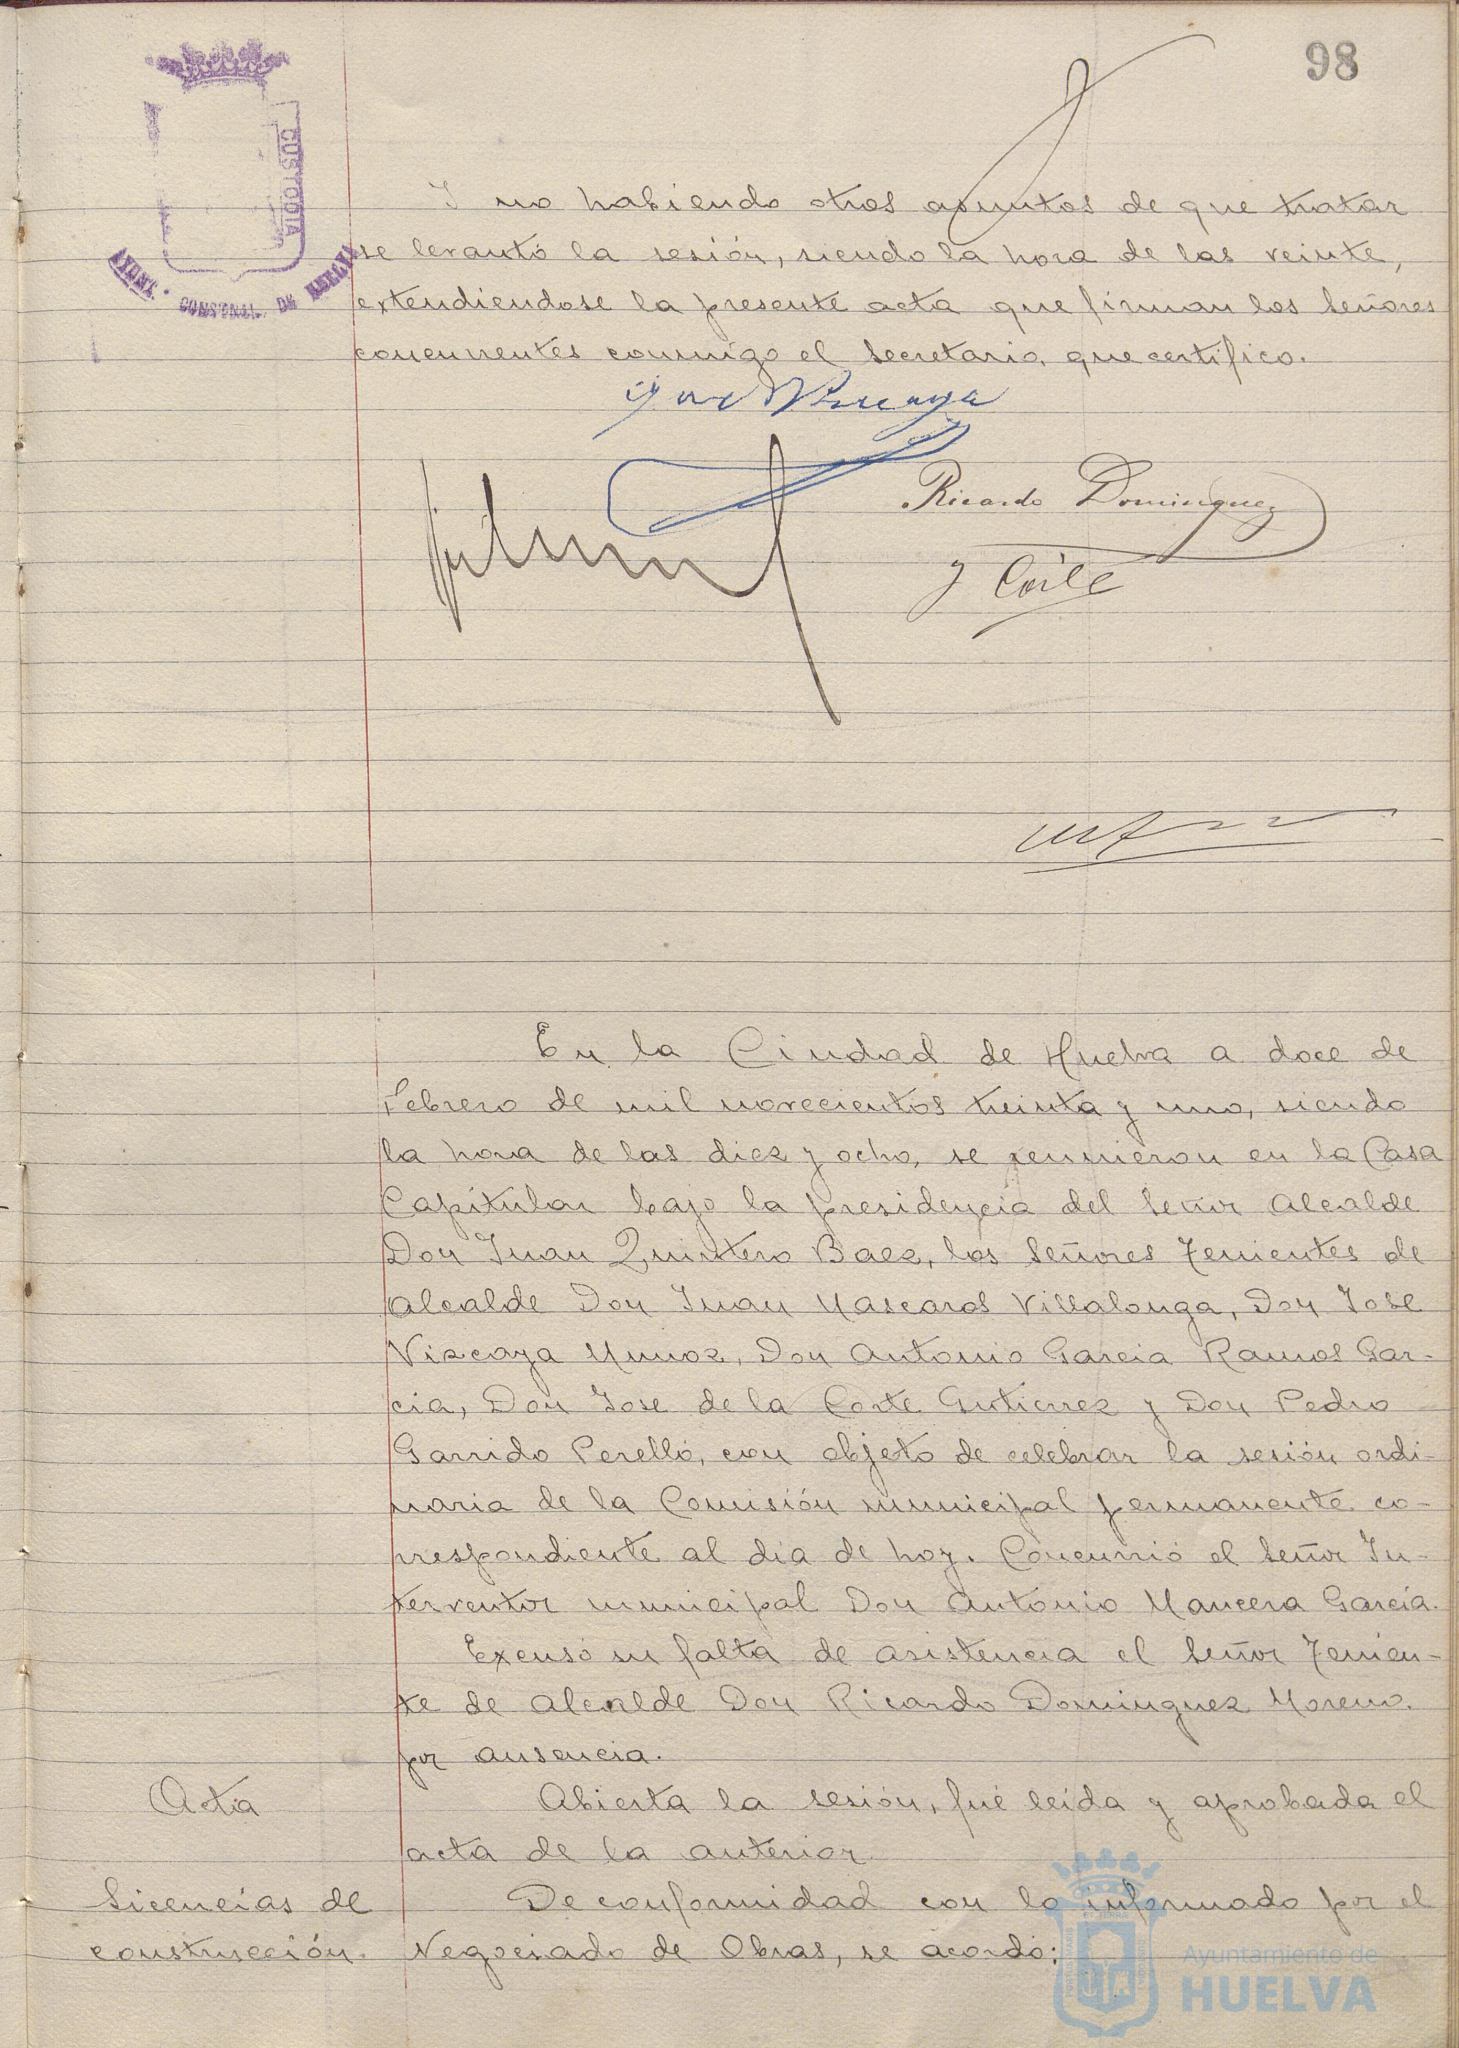 98
CUSTODIA
AYUNT. CONSTNAL. DE HUELVA
Y no habiendo otros asuntos de que tratar
se levantó la sesión, siendo la hora de las veinte,
extendiendose la presente acta que firman los Señores
concurrentes conmigo el Secretario, que certifico.
José Vizcaya
Ricardo Dominguez
J Corte
En la Ciudad de Huelva a doce de
Febrero de mil novecientos treinta y uno, siendo
la hora de las diez y ocho, se reunieron en la Casa
Capitular bajo la presidencia del Señor Alcalde
Don Juan Quintero Baez, los Señores Tenientes de
Alcalde Don Juan Mascaros Villalonga, Don Jose
Vizcaya Munoz, Don Antonio Garcia Ramos Gar-
cia, Don Jose de la Corte Gutierrez y Don Pedro
Garrido Perelló, con objeto de celebrar la sesión ordi-
naria de la Comisión municipal permanente co-
rrespondiente al dia de hoy. Concurrió el Señor In-
terventor municipal Don Antonio Mancera García.
Excusó su falta de asistencia el Señor Tenien-
te de Alcalde Don Ricardo Dominguez Moreno,
por ausencia.
Acta
Abierta la sesión, fué leida y aprobada el
acta de la anterior.
Licencias de
construcción.
De conformidad con lo informado por el
Negociado de Obras, se acordó:
Ayuntamiento de
HUELVA